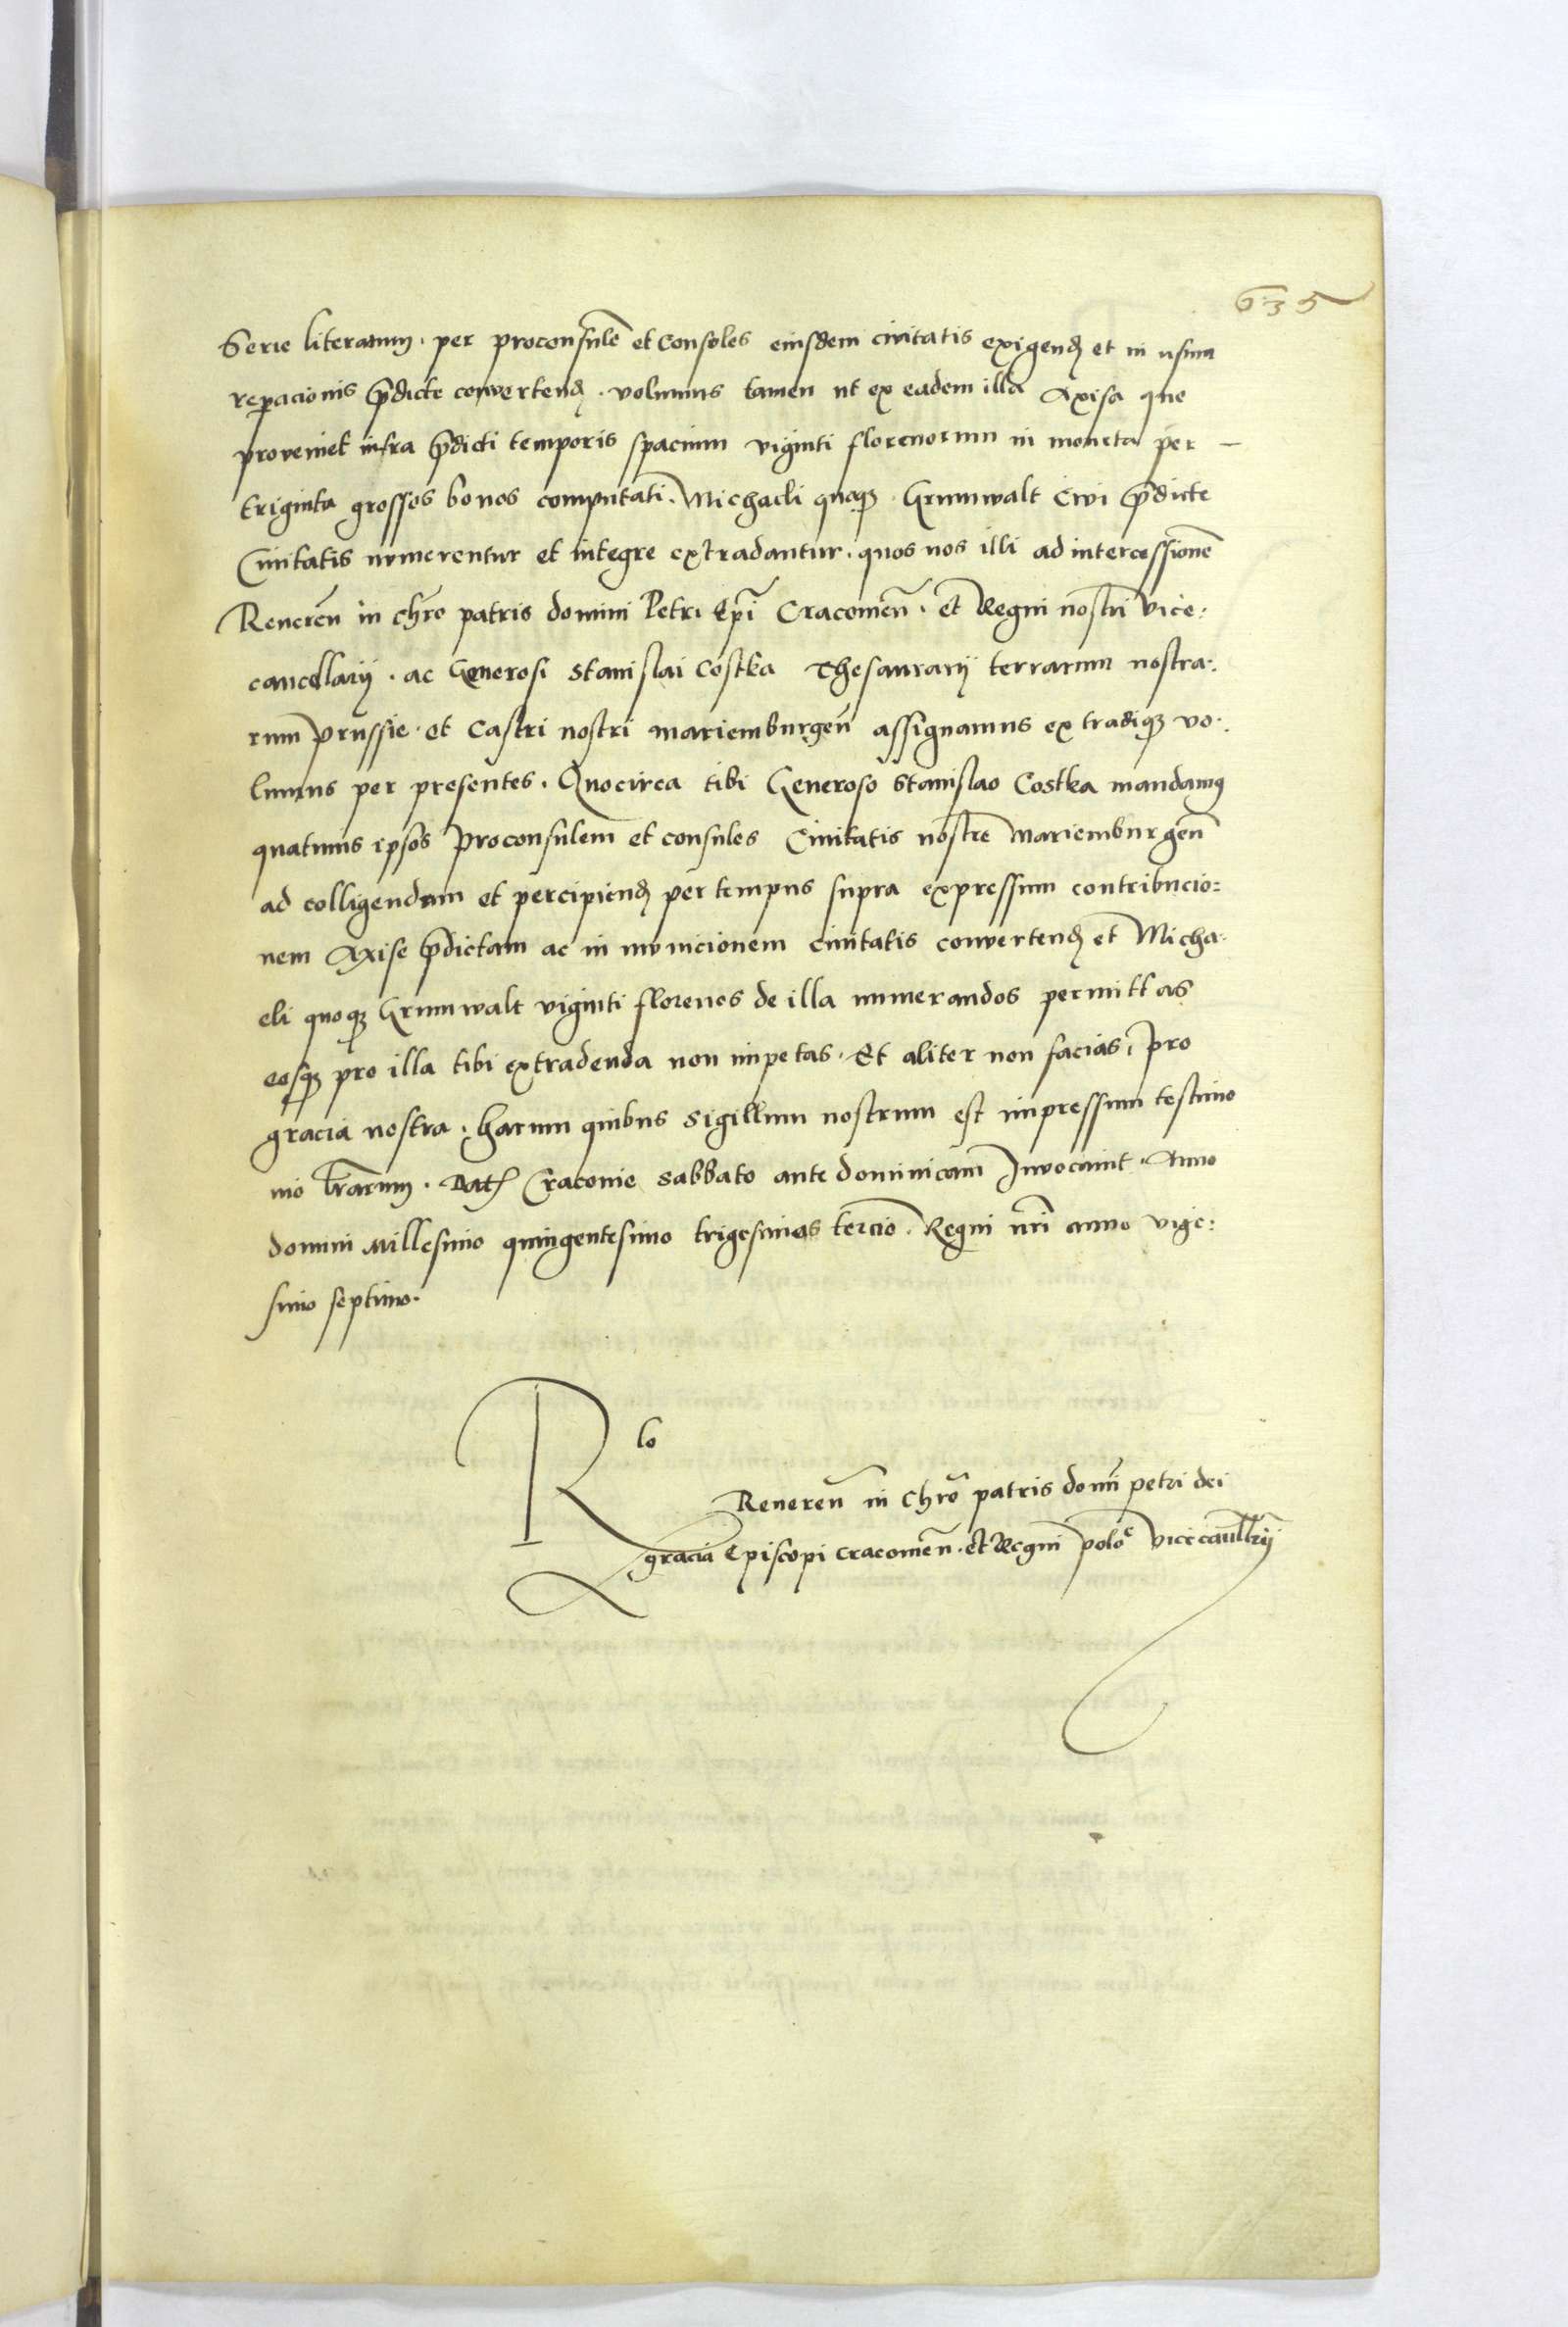 635
Serie literarum. per proconsulē et Consoles eiusdem civitatis exigendꝫ et in usum
repacionis p̄dicte convertendꝫ. volumus tamen ut ex eadem illa Axisa que
proveniet infra p̄dicti temporis spacium viginti florenorum in moneta per –
triginta grossos bonos computati. Michaeli quoqꝫ Grunwalt Civi p̄dicte
Civitatis numerentur et integre extradantur. quos nos illi ad intercessionē
Reverēn in chrō patris domini Petri Ep̄i Cracovieñ. et Regni nostri vice:
cancellarij. ac Generosi Stanislai Costka Thesaurarij terrarum nostra:
rum Prussie. et Castri nostri mariemburgeñ assignamus extradiqꝫ vo:
lumus per presentes. Quocirca tibi Generoso Stanislao Costka mandamꝰ
quatinus ipsos Proconsulem et consules Civitatis nostre Mariemburgeñ
ad colligendum et percipiendꝫ per tempus supra expressum contribucio:
nem Axise p̄dictam ac in municionem civitatis convertendꝫ et Micha:
eli quoqꝫ Grunwalt viginti florenos de illa numerandos permittas
eosqꝫ pro illa tibi extradenda non impetas. Et aliter non facias, pro
gracia nostra. Harum quibus sigillum nostrum est impressum testimo
nio l̄rarum. Datꝫ Cracovie sabbato ante dominicam Invocavit. Anno
domini Millesimo quingentesimo trigesimos tercio. Regni nr̄i anno vige:
simo septimo.
Rlo
Revereñ in Chrō patris domī petri dei
gracia Episcopi cracovieñ. et Regni polōe vicecanc̄llrij